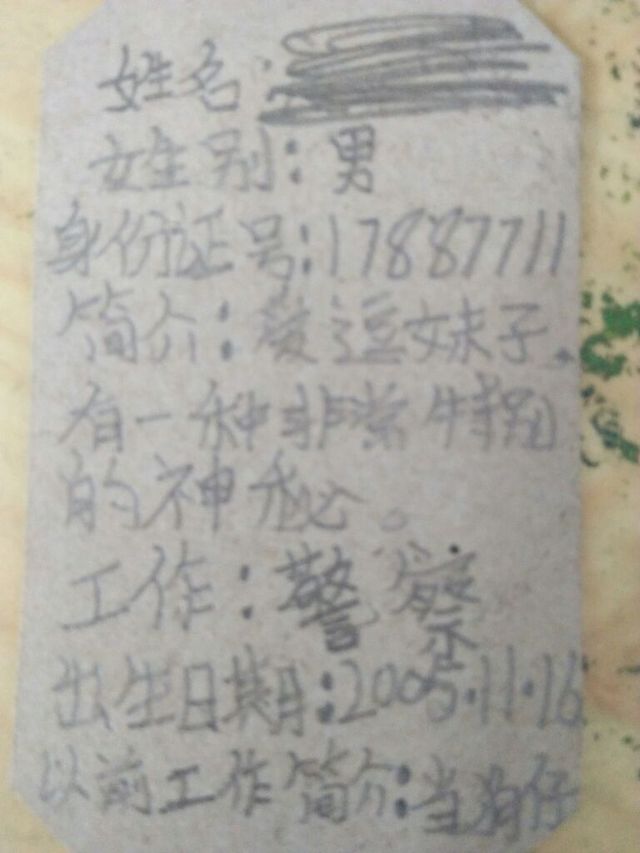 姓名:
姓别:男
身份证号:17887711
简介:爱逗妹子。
有一种非常特别
的神秘。
工作:警察
出生日期:2005.11.16
以前工作简介:当狗仔